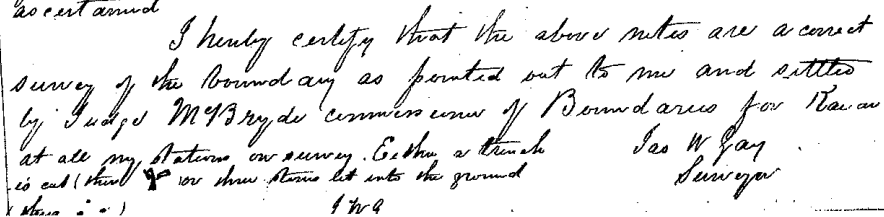 ascertained
I hereby certify that the above notes are a correct
survey of the boundary as pointed out to me and settled
by Judge McBryde commissioner of Boundaries for Kauai
at all my stations on survey. Either a trench Jas W Gay
is cut (thus or three stones let into the ground Surveyor
(thus